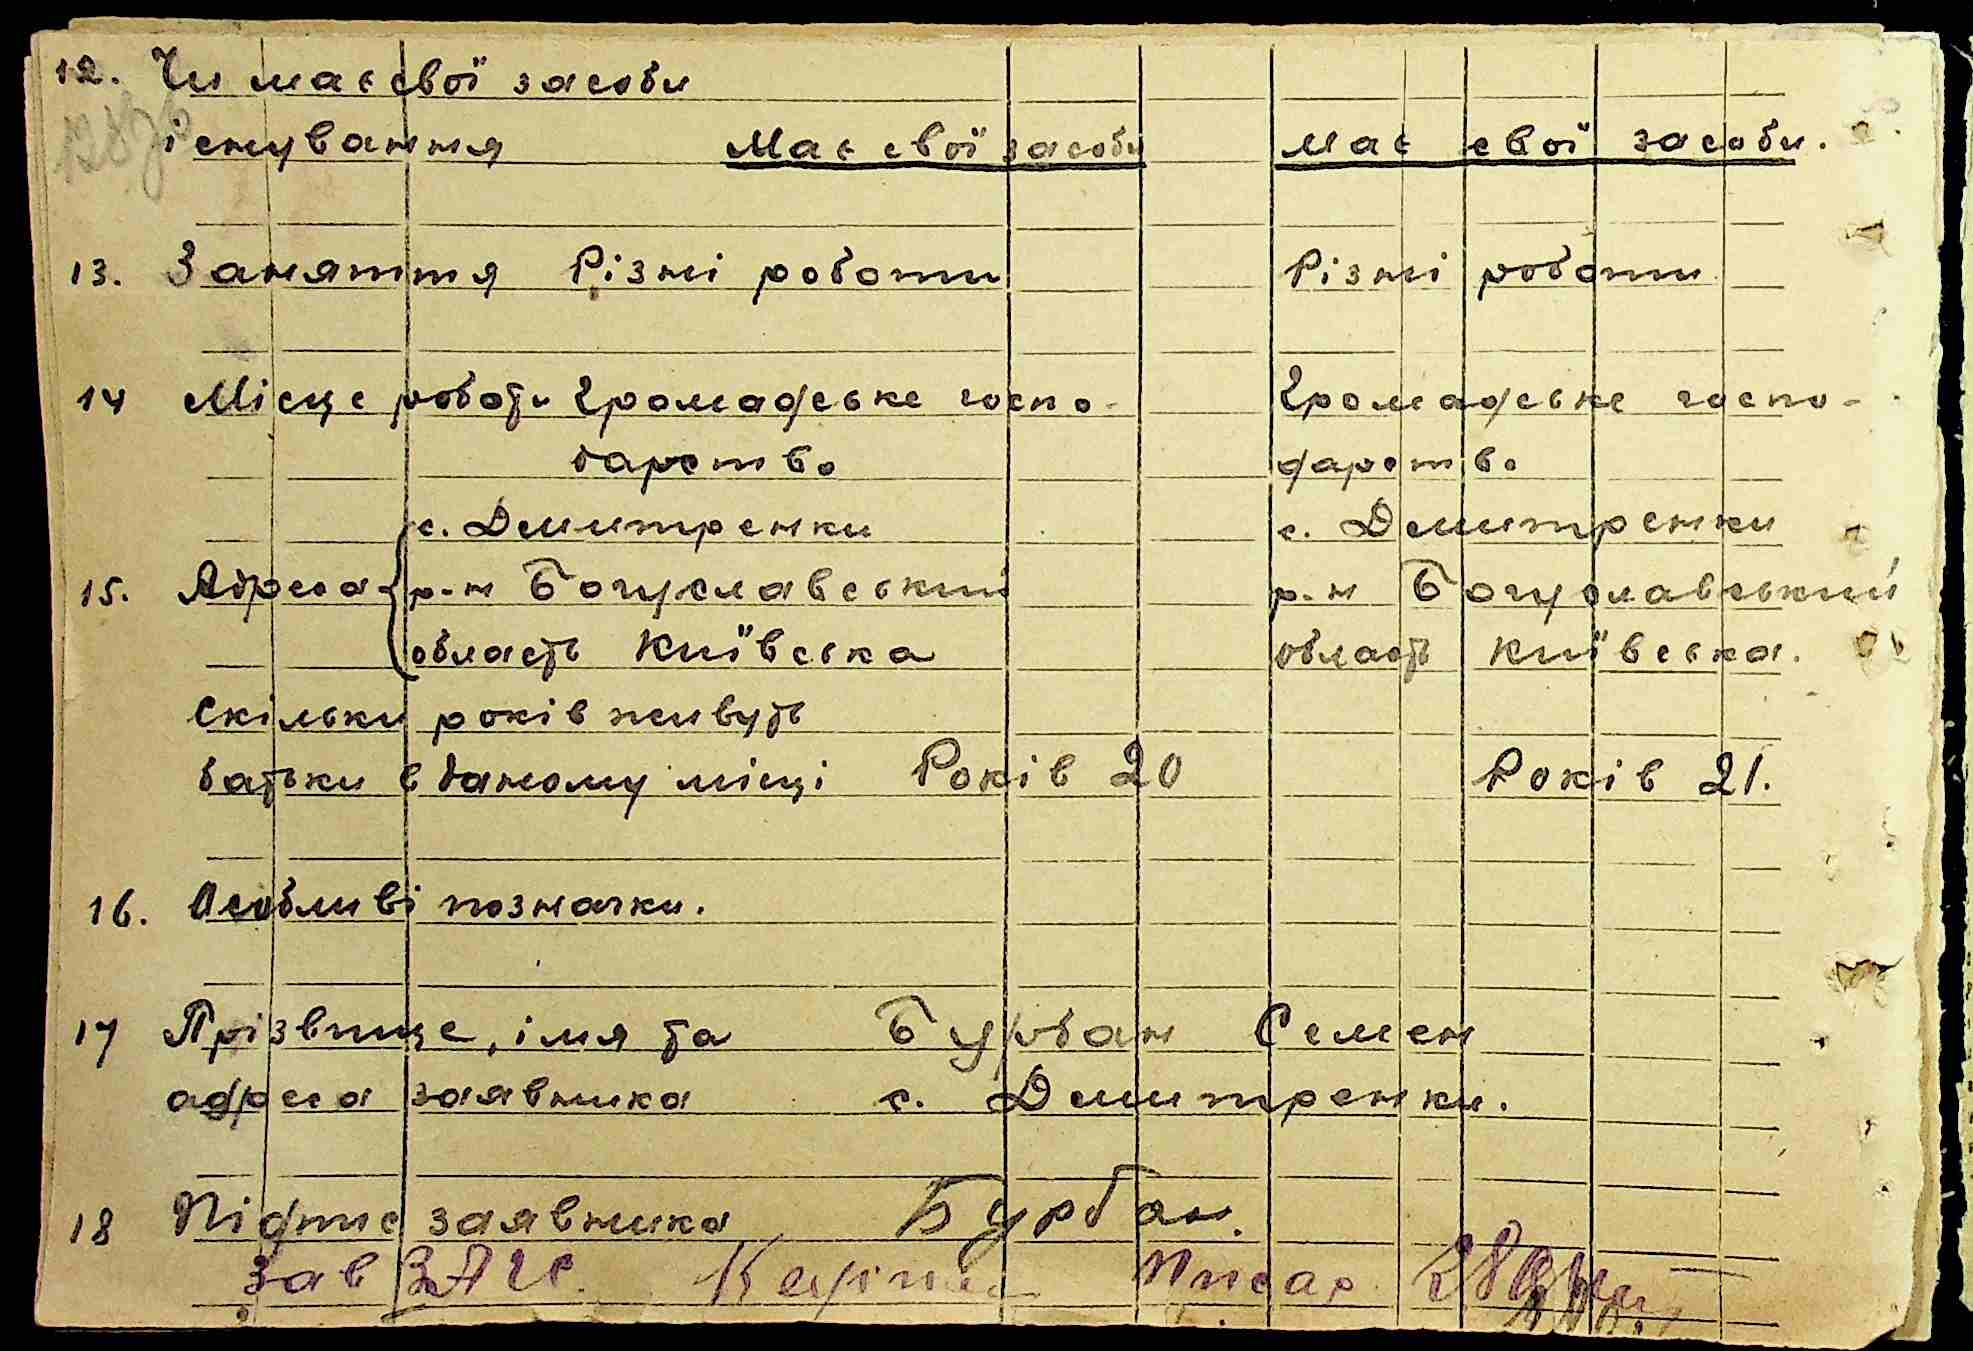 12. Чи має свої засоби
існування Має свої засоби має свої засоби.
13. Заняття Різні роботи Різні роботи
14 Місце роботи Громадське госпо- Громадське госпо-
дарство дарство
с. Дмитренки с. Дмитренки
15. Адреса р-н Богуславський р-н Богуславський
область Київська область Київська.
Скільки років живуть
батьки в даному місці Років 20 Років 21.
16. Особливі позначки.
17 Прізвище, імя та Бурбан Семен
адреса заявника с. Дмитренки.
18 Підпис заявника Бурбан.
Зав ЗАГС. Писар